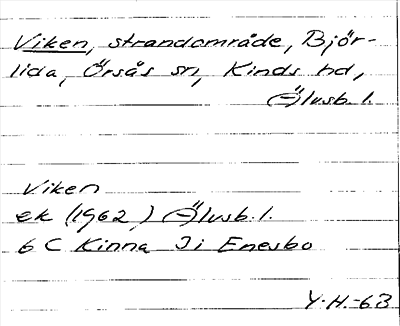 Viken, strandområde, Björ-
lida, Örsås sn, Kinds hd,
Älvsb. l.
Viken
ek (1962) Älvsb. l.
6 C Kinna 3i Enesbo
Y.H.-63